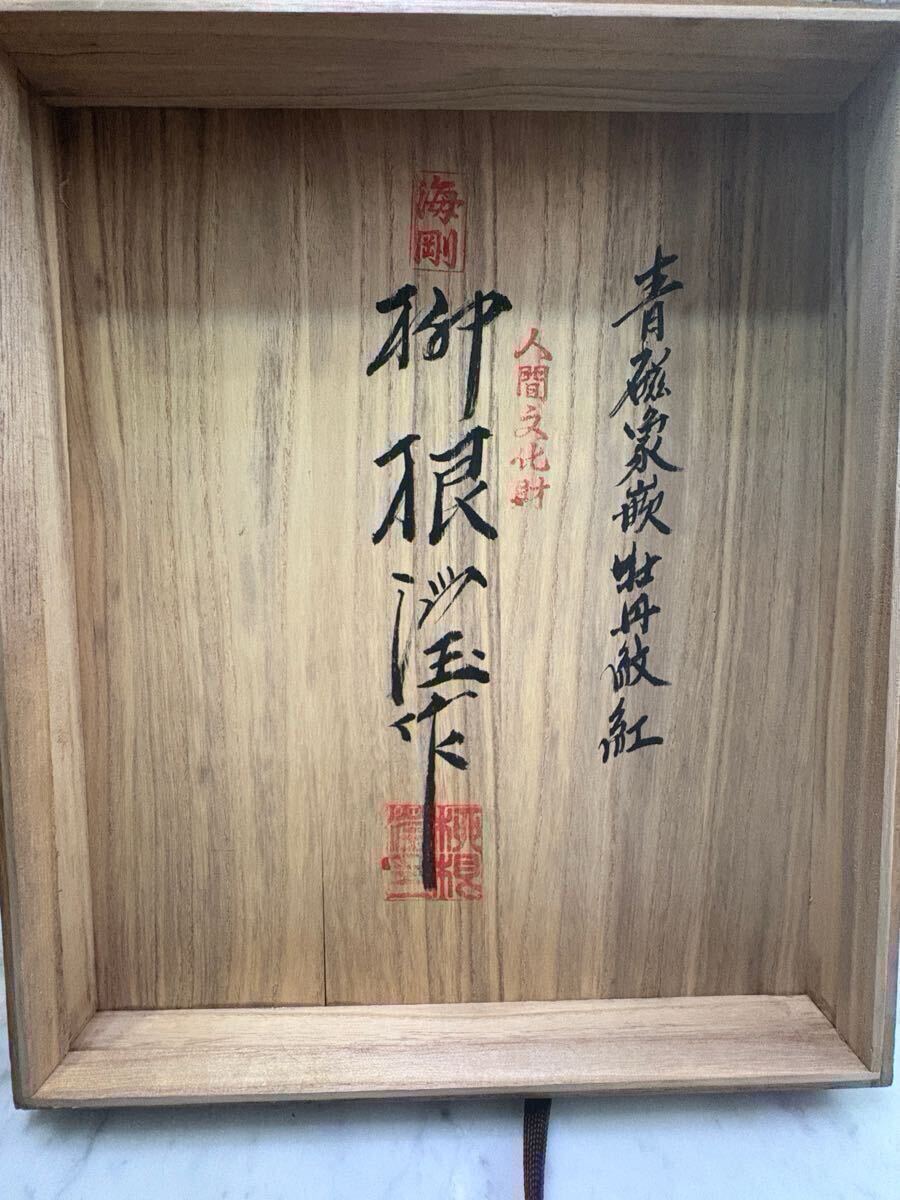 青磁象嵌牡丹
人間文化財
海剛
柳根瀅作
柳根